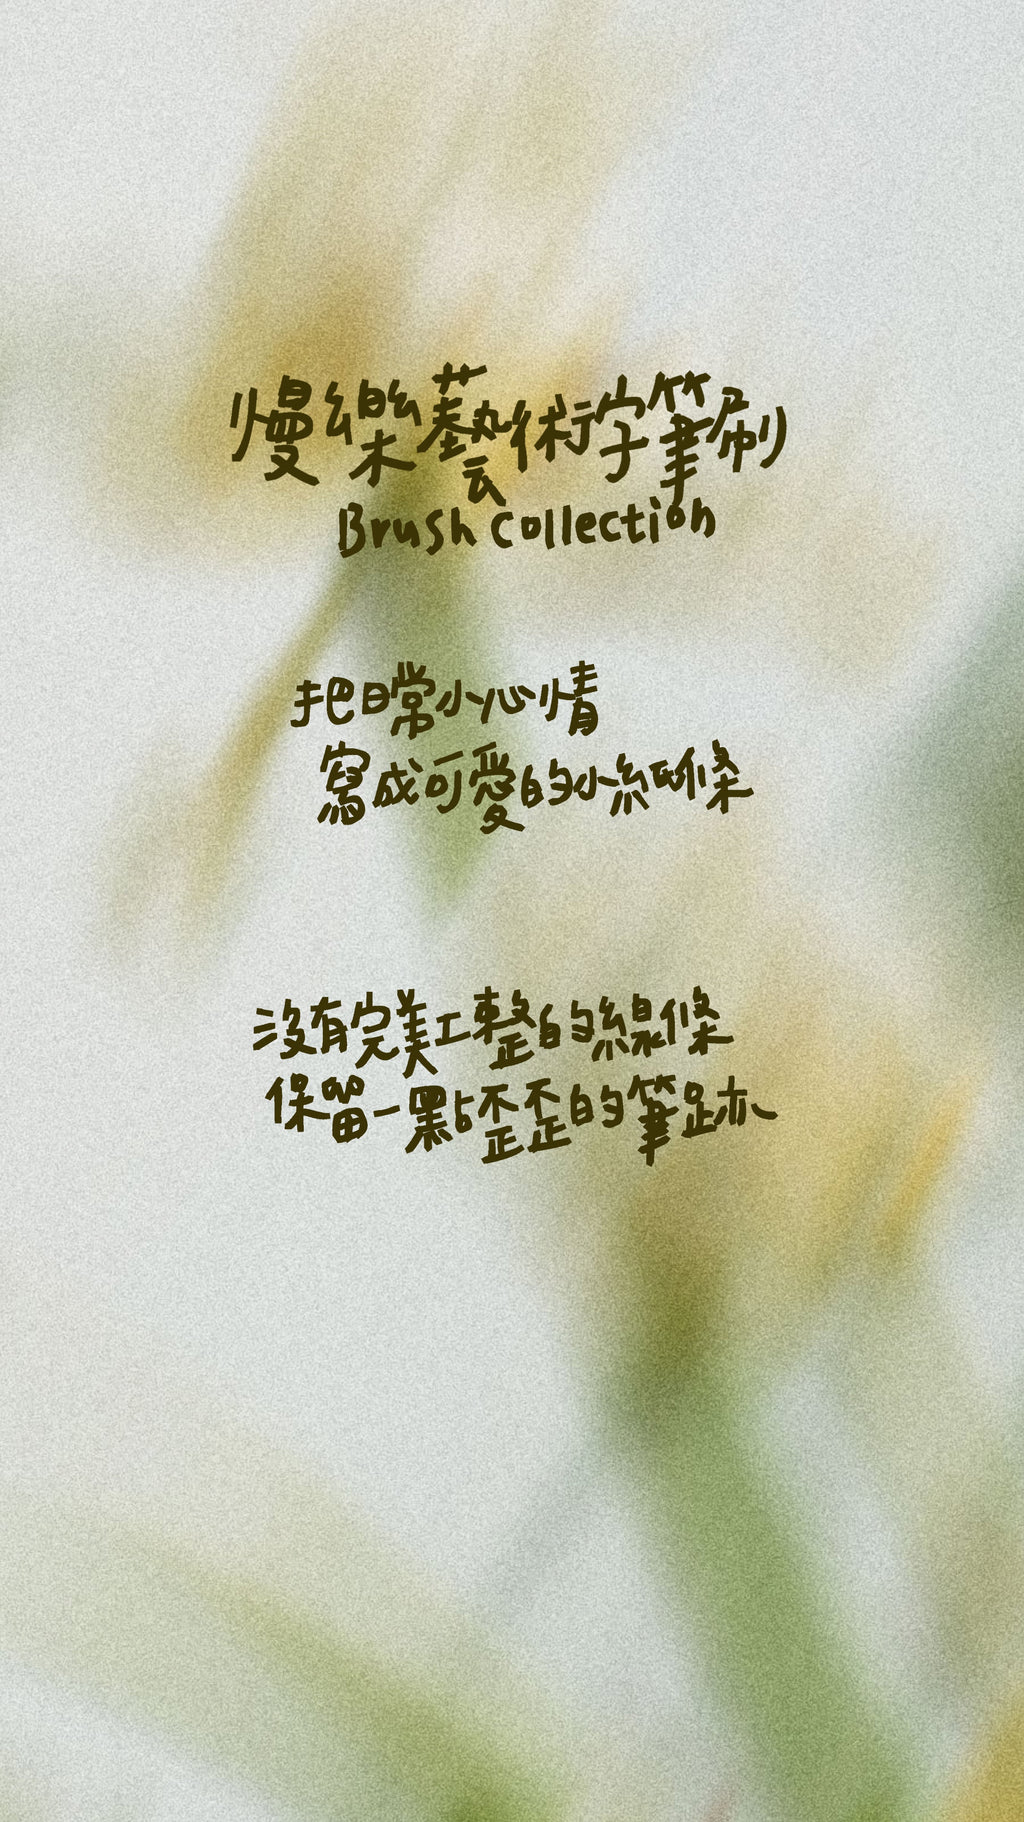 慢樂藝術字筆刷
Brush Collection
把日常小心情
寫成可愛的小紙條
沒有完美工整的線條
保留一點歪歪的筆跡